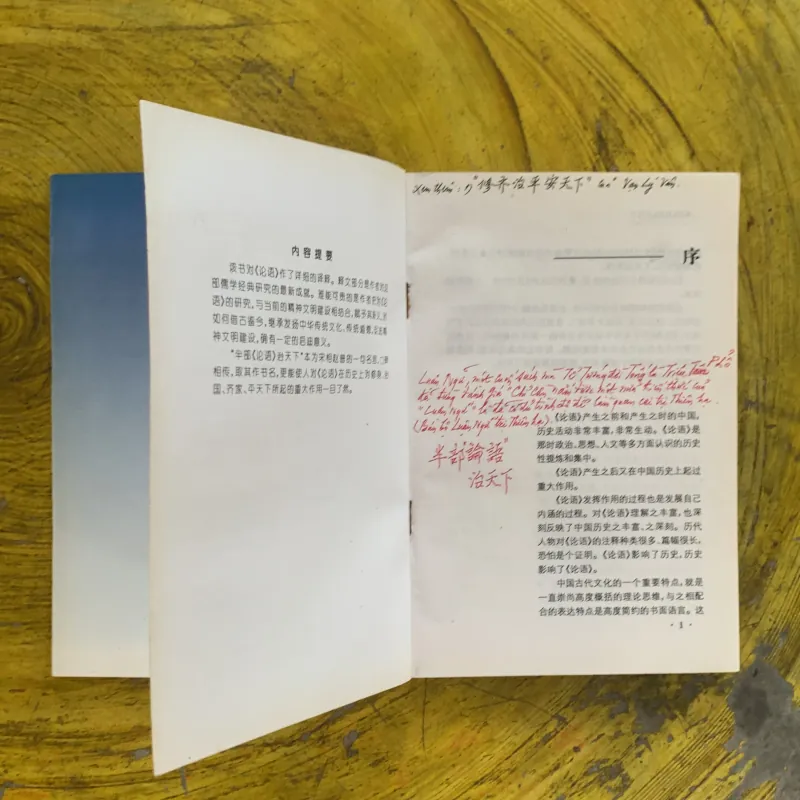 内容提要
该书对《论语》作了详细的译释。释文部分是作者的
部儒学经典研究的最新成就。难能可贵的是作者把对《论
语》的研究，与当前的精神文明建设相结合，
如何借古鉴今，继承发扬中华传统文化、传统道德，
神文明建设，确有一定的启迪意义。
“半部《论语》治天下”本为宋相赵普的一句名言，
相传，取其作书名，更能使人对《论语》在历史上对修身、治
国、齐家、平天下所起的重大作用一目了然。
Xem thêm: "修齐治平安天下" của
序
Luận Ngữ, một cuốn sách mà Tể Tướng đời Tống là Triệu Phổ
đã từng đánh giá "Chỉ cần nắm vững một nửa" tri thức của
"Luận Ngữ" là đã có đủ trình độ để làm quan cai trị thiên hạ.
(Bán bộ Luận Ngữ trị Thiên hạ)
半部“論語”
治天下
《论语》产生之前和产生之时的中国，
历史活动非常丰富，非常生动。《论语》是
那时政治、思想、人文等多方面认识的历史
性提炼和集中。
《论语》产生之后又在中国历史上起过
重大作用。
《论语》发挥作用的过程也是发展自己
内涵的过程。对《论语》理解之丰富，也深
刻反映了中国历史之丰富、之深刻。历代
人物对《论语》的注释种类很多、篇幅很长，
恐怕是个证明。《论语》影响了历史，历史
影响了《论语》。
中国古代文化的一个重要特点，就是
一直崇尚高度概括的理论思维，与之相配
合的表达特点是高度简约的书面语言。这
· 1 ·